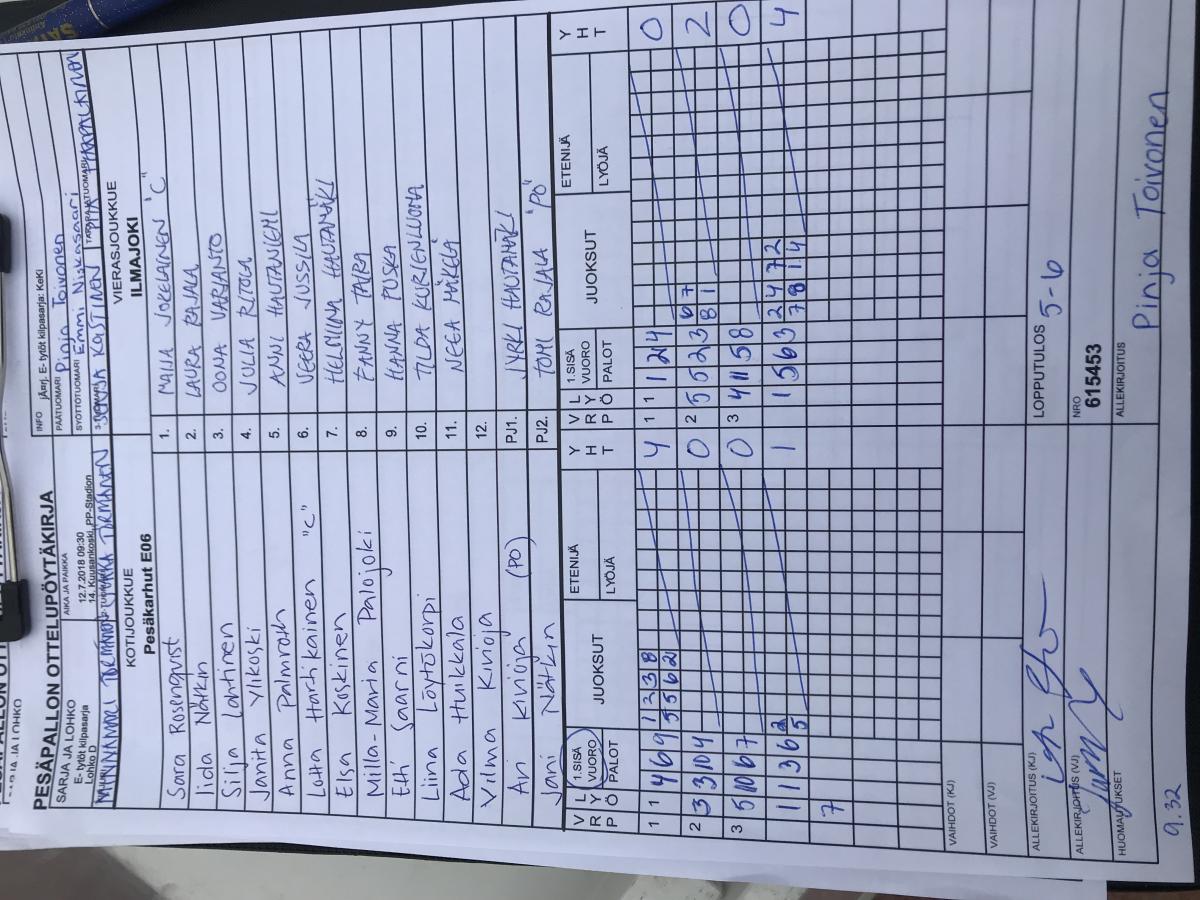 PESÄPALLON OTTELUPÖYTÄKIRJA
SARJA JA LOHKO
E- tytöt kilpasarja
Lohko D
AIKA JA PAIKKA
12.7.2018 09:30
14. Kuusankoski, PP-Stadion
INFO jÄrrj. E- tytöt kilpasarja: KeKi
PÄÄTUOMARI Pinja Toivonen
SYÖTTÖTUOMARI Emmi Niskasaari
KOTIJOUKKUE
Pesäkarhut E06
VIERASJOUKKUE
ILMAJOKI
Sara Rosenqvist 1. MAIJA JOKELAINEN "C"
Iida Nätkin 2. LAURA RAJALA
Silja Lahtinen 3. OONA VARJANTO
Janita Ylikoski 4. JULIA RITOLA
Anna Palmroth 5. ANNI HAUTANIEMI
Lotta Hartikainen "C" 6. VEERA JUSSILA
Elsa Koskinen 7. HELMIINA HAUTAMÄKI
Milla-Maria Palojoki 8. FANNY TARA
Eti Saarni 9. HANNA PUSKA
Liina Löytökorpi 10. TILDA KURJENLUOMA
Ada Huikkala 11. NEEA MÄKELÄ
Vilma Kivioja 12.
Ari Kivioja (PO) PJ1. JYRKI HAUTAMÄKI
Jani Nätkin PJ2. TOMI RAJALA "PO"
V R P L Y Ö 1.SISÄ VUORO PALOT JUOKSUT ETENIJÄ LYÖJÄ Y H T V R P L Y Ö 1.SISÄ VUORO PALOT JUOKSUT ETENIJÄ LYÖJÄ Y H T
1 1 4 6 9 1 2 3 8 4 1 1 1 2 4 0
5 5 6 2
2 3 3 10 4 0 2 5 5 2 3 6 7 2
8 1
3 5 10 6 7 0 3 4 11 5 8 0
1 1 3 6 2 2 1 1 5 6 3 2 4 7 2 4
5 7 8 1 4
7
VAIHDOT (KJ)
VAIHDOT (VJ)
ALLEKIRJOITUS (KJ)
LOPPUTULOS 5-6
ALLEKIRJOITUS (VJ)
NRO
615453
HUOMAUTUKSET
ALLEKIRJOITUS
Pinja Toivonen
9.32